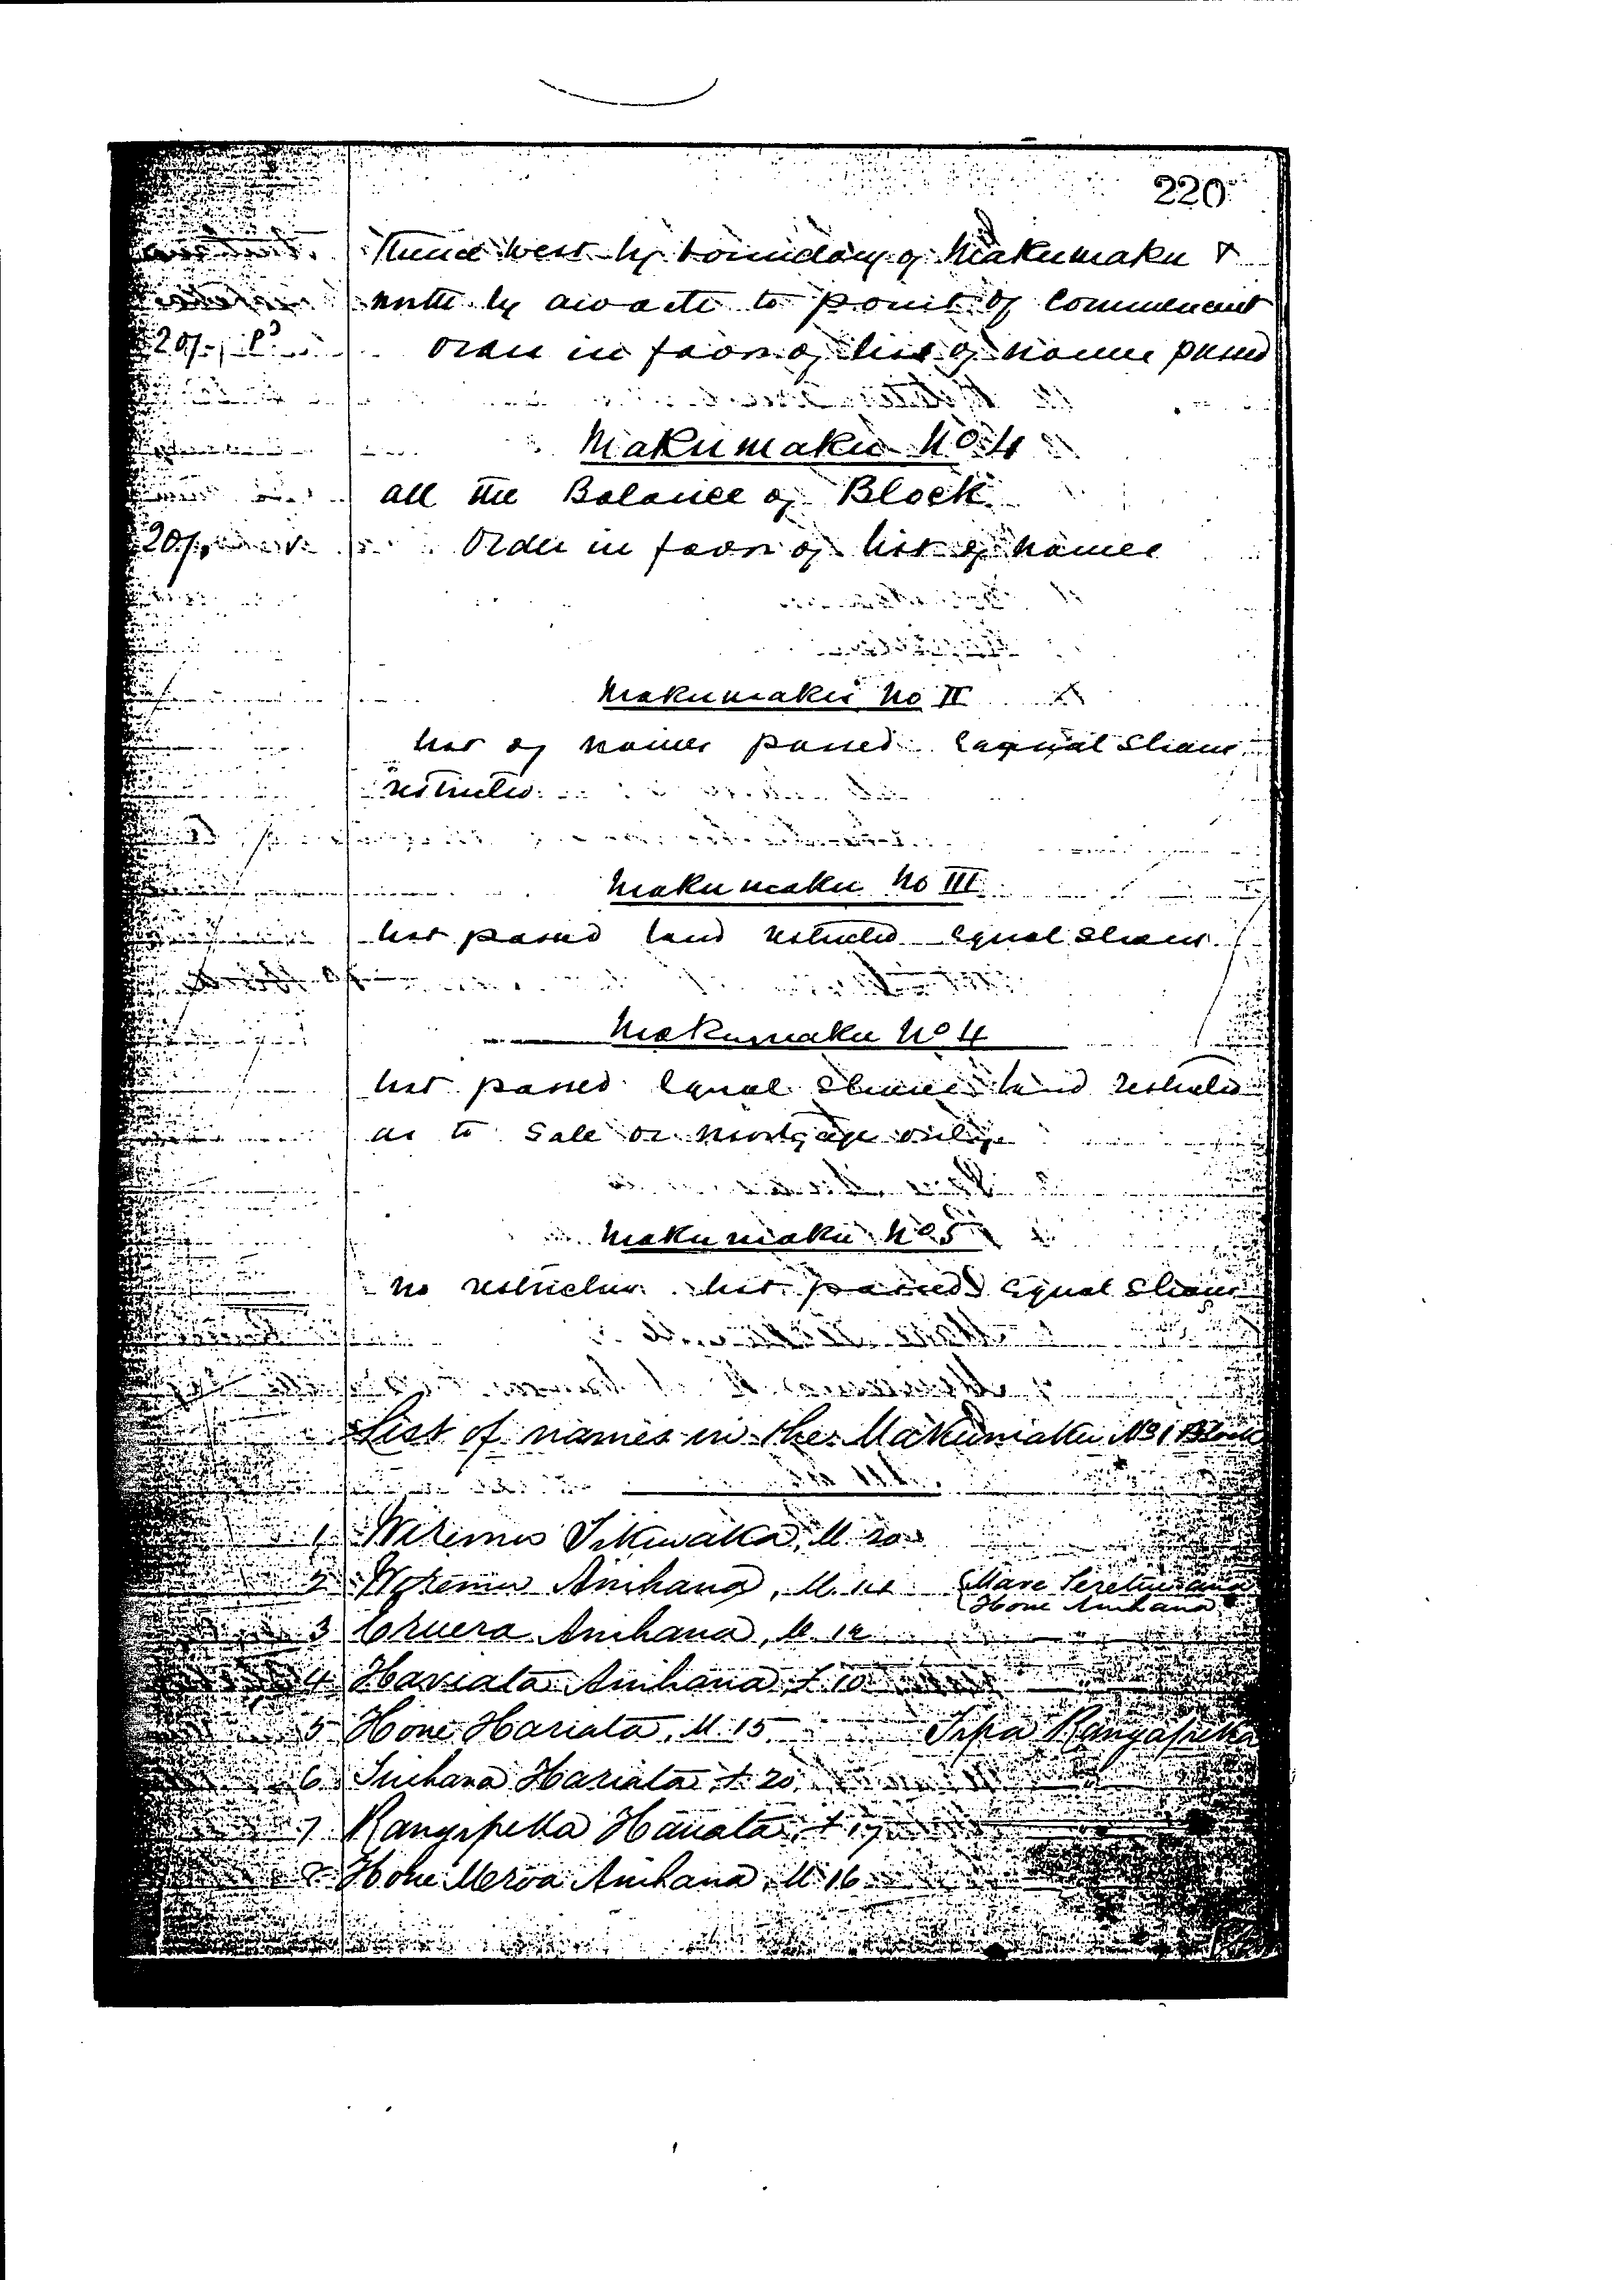 220
Thence West by boundary of Makumaku &
north by awaute to point of Commencent
20/- pd Order in favor of list of names passed
Makumaku No 4
all the Balance of Block
20/- Order in favor of list of names
Makumaku No II
list of names passed Equal Shares
restricted
Makumaku No III
list passed land restricted equal shares
Makumaku No 4
list passed Equal Shares land restricted
as to Sale or Mortgage only
Makumaku No 5
No restriction list passed Equal Shares
List of names in the Makumaku No 1 Block
1 Wiremu Tikiwaka, M 20
2 Wiremu Anihana, M. 14 Hone Anihana
3 Eruera Anihana, M. 12
4 Hariata Anihana, f 10
5 Hone Hariata, M. 15
6 Hariata, f 20
7 Rangipeka Hariata, f 17
8 Hone Meroa Anihana, M 16